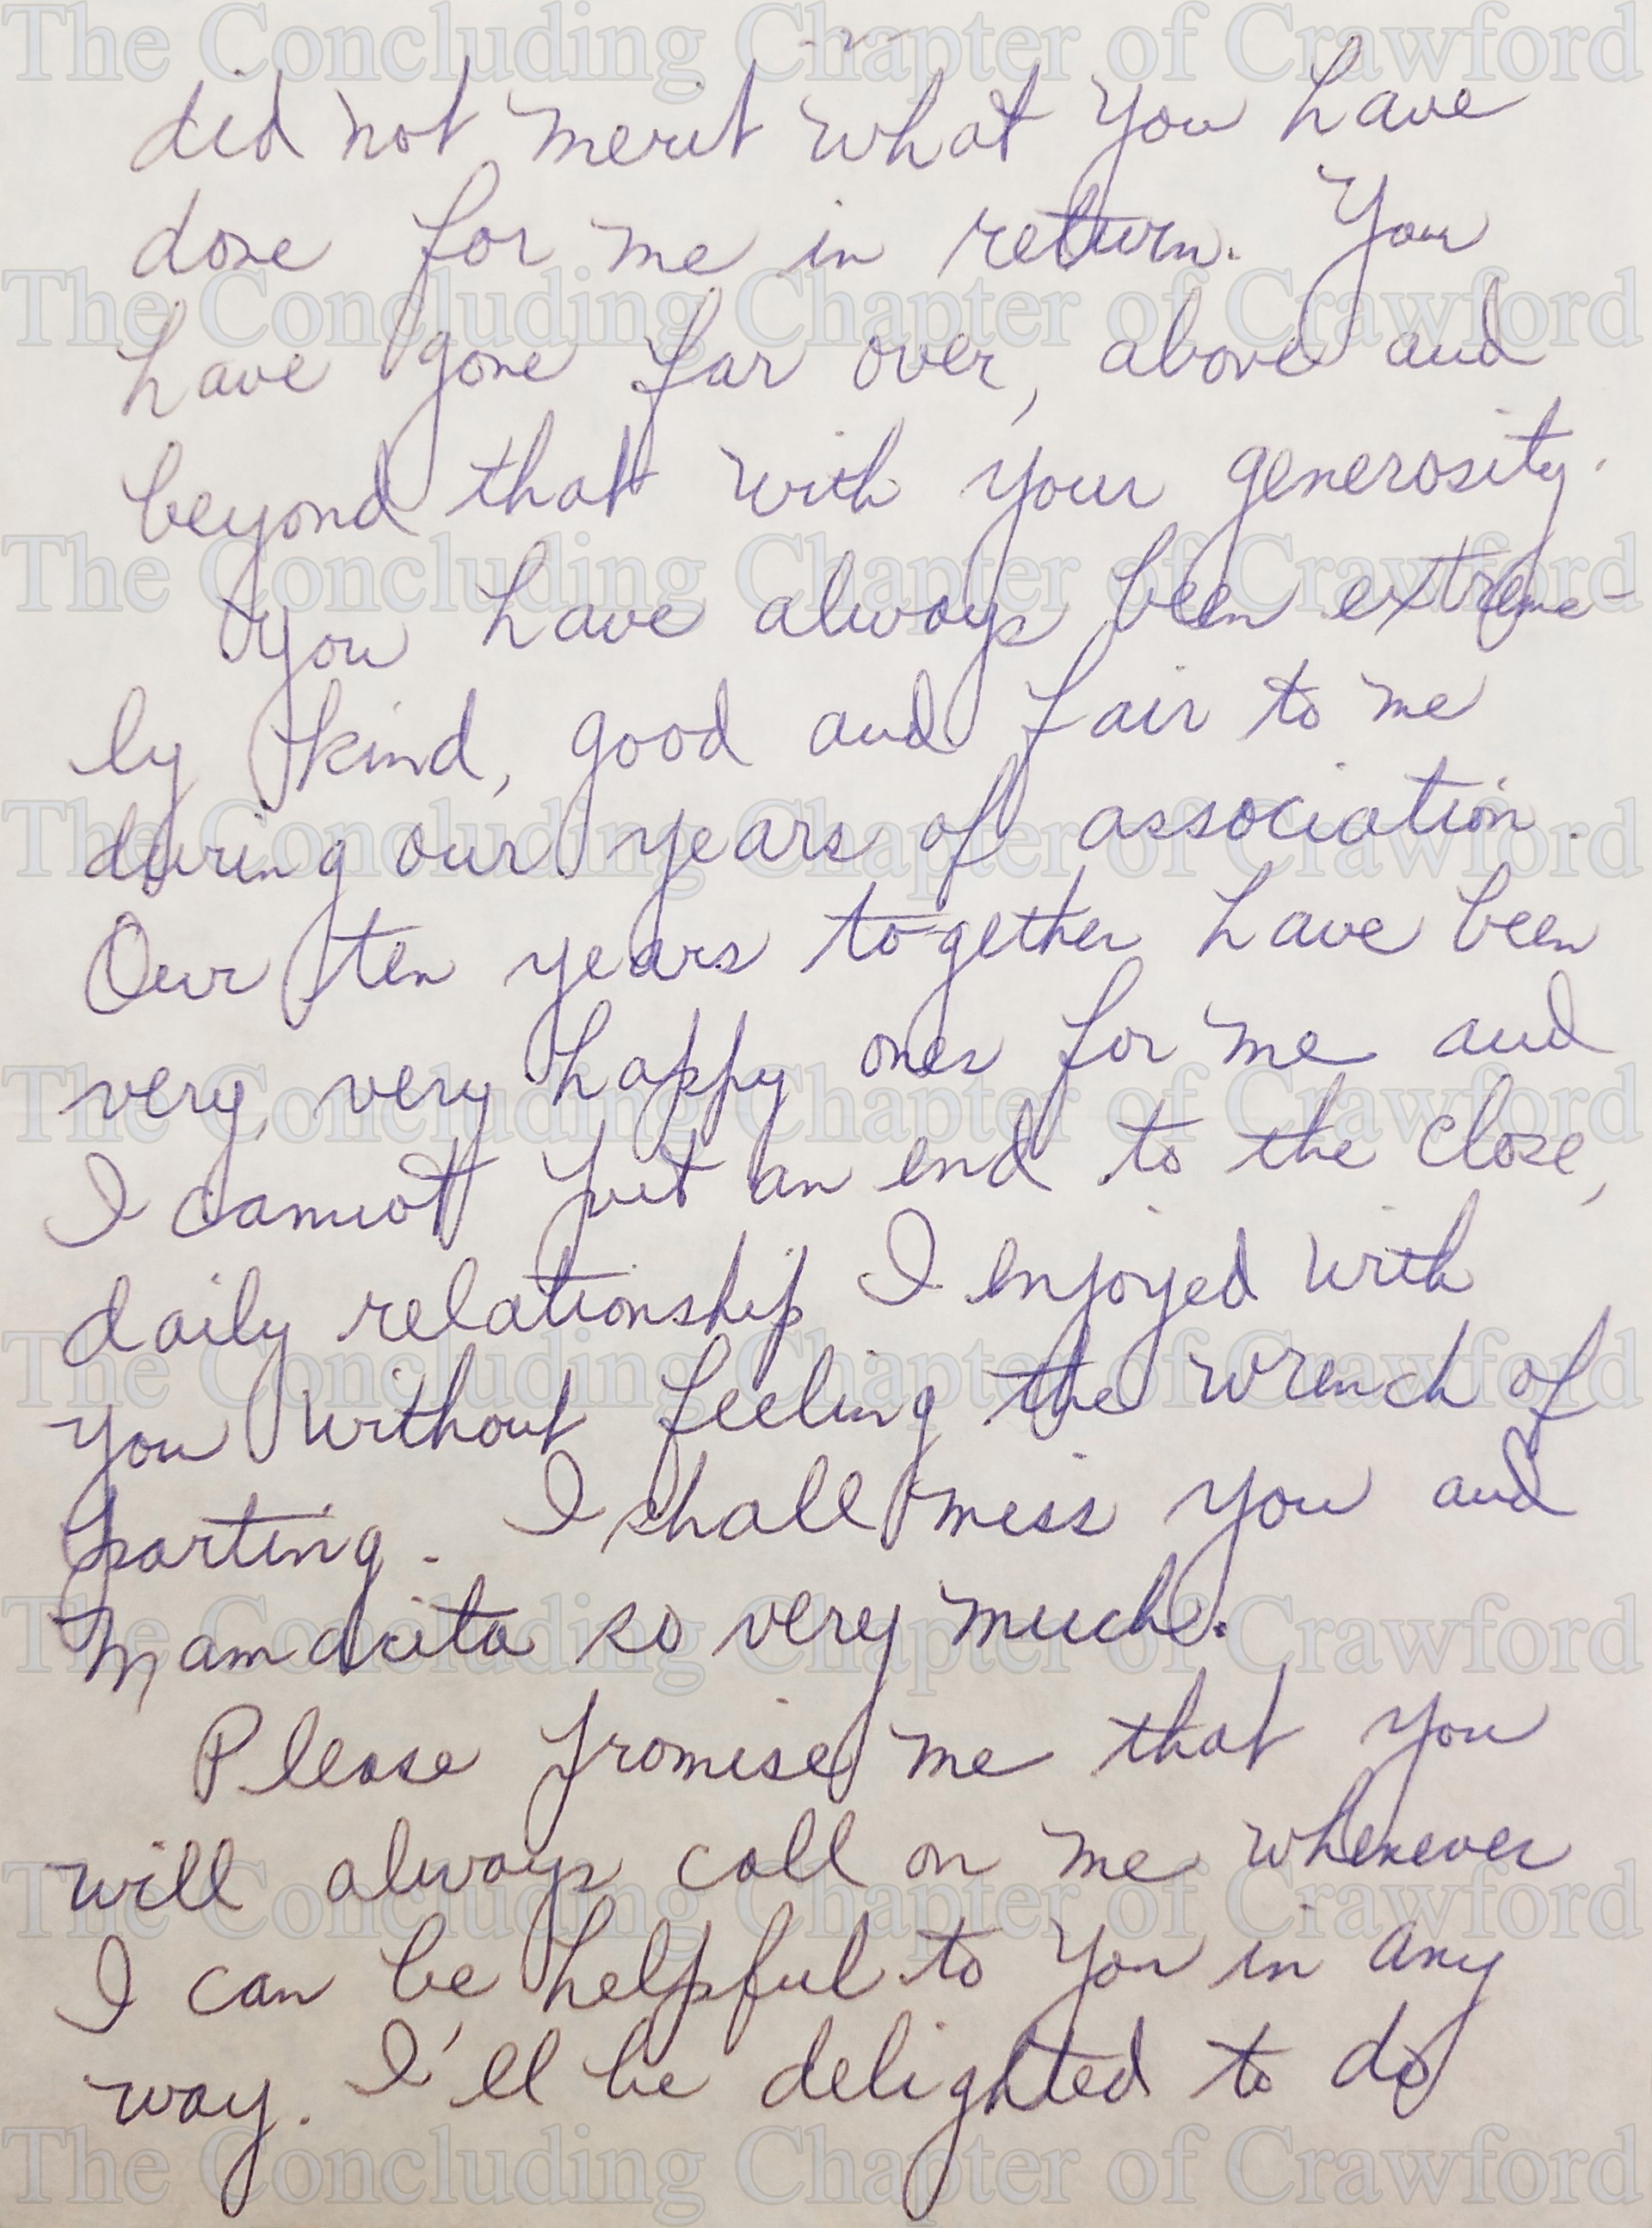 The Concluding Chapter of Crawford
-2-
did not merit what you have
done for me in return. You
The Concluding Chapter of Crawford
have gone far over, above and
beyond that with your generosity.
The Concluding Chapter of Crawford
You have always been extreme-
ly kind, good and fair to me
The Concluding Chapter of Crawford
during our years of association.
Our ten years together have been
very, very happy ones for me and
The Concluding Chapter of Crawford
I cannot put an end to the close,
daily relationship I enjoyed with
The Concluding Chapter of Crawford
you without feeling the wrench of
parting. I shall miss you and
Mamacita so very much.
The Concluding Chapter of Crawford
Please promise me that you
will always call on me whenever
The Concluding Chapter of Crawford
I can be helpful to you in any
way. I'll be delighted to do
The Concluding Chapter of Crawford